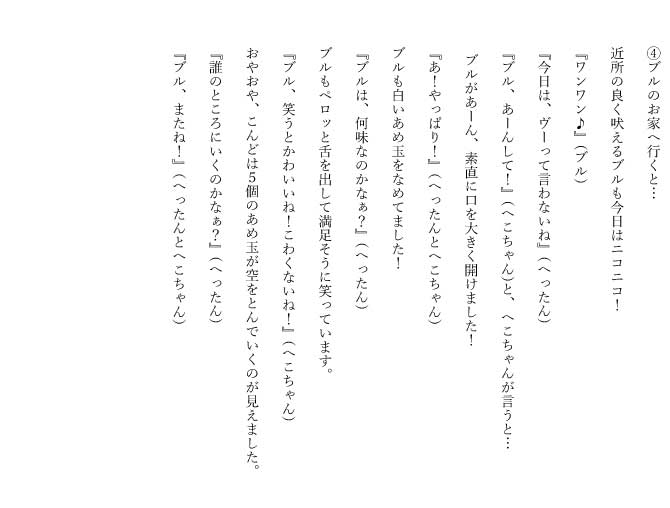 ④ブルのお家へ行くと…
近所の良く吠えるブルも今日はニコニコ！
『ワンワン♪』（ブル）
『今日は、ヴーって言わないね』（へったん）
『ブル、あーんして！』（へこちゃん）と、へこちゃんが言うと…
ブルがあーん、素直に口を大きく開けました！
『あ！やっぱり！』（へったんとへこちゃん）
ブルも白いあめ玉をなめてました！
『ブルは、何味なのかなぁ？』（へったん）
ブルもペロッと舌を出して満足そうに笑っています。
『ブル、笑うとかわいいね！こわくないね！』（へこちゃん）
おやおや、こんどは５個のあめ玉が空をとんでいくのが見えました。
『誰のところにいくのかなぁ？』（へったん）
『ブル、またね！』（へったんとへこちゃん）